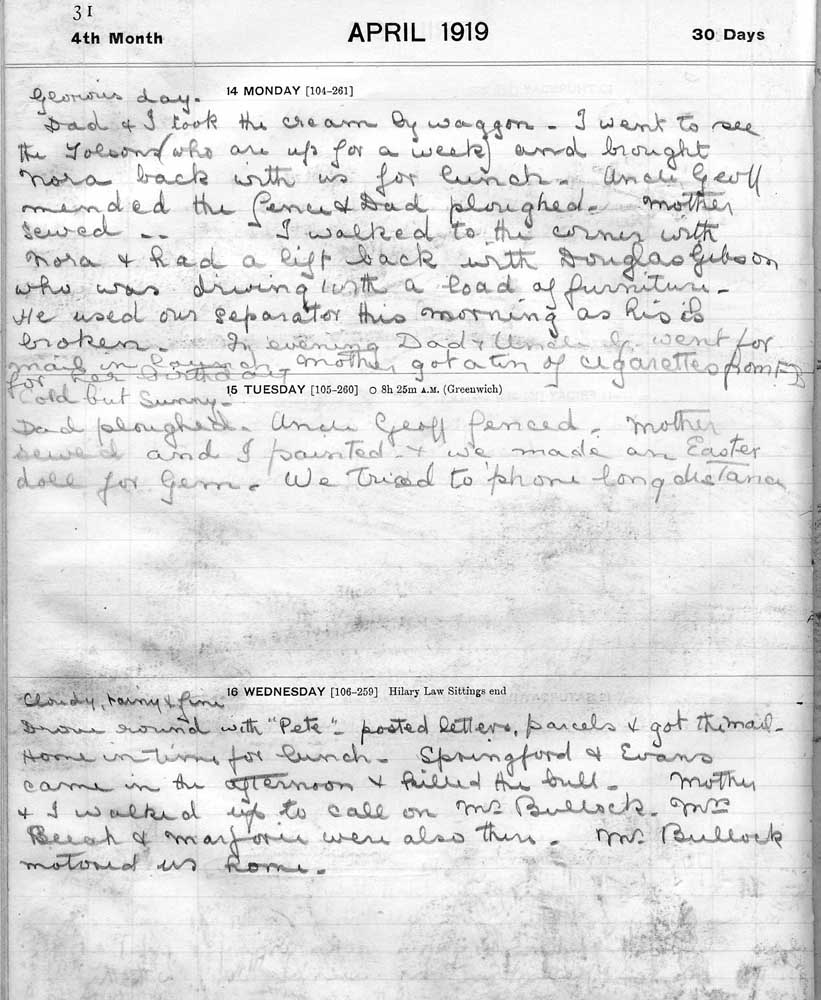 31
4th Month
APRIL 1919
30 Days
14 MONDAY [104-261]
Glorious day.
Dad & I took the cream by waggon - I went to see
the Tolsons (who are up for a week) and brought
Nora back with us for lunch. Uncle Geoff
mended the fence & Dad ploughed. Mother
sewed -- I walked to the corner with
Nora & had a lift back with Douglas Gibson
who was driving with a load of furniture -
He used our separator this morning as his is
broken. In evening Dad & Uncle G. went for
mail in launch. Mother got a tin of cigarettes from
for her birthday
15 TUESDAY [105-260] ○ 8h 25m A.M. (Greenwich)
Cold but Sunny -
Dad ploughed. Uncle Geoff fenced. Mother
sewed and I painted & we made an Easter
doll for Gem. We tried to 'phone long distance
16 WEDNESDAY [106-259] Hilary Law Sittings end
Cloudy, rainy & fine
Drove round with "Pete" - posted letters, parcels & got the mail -
Home in time for lunch - Springford & Evans
came in the afternoon & killed the bull - Mother
& I walked up to call on Mrs Bullock. Mrs
& Marjorie were also there. Mr. Bullock
motored us home.